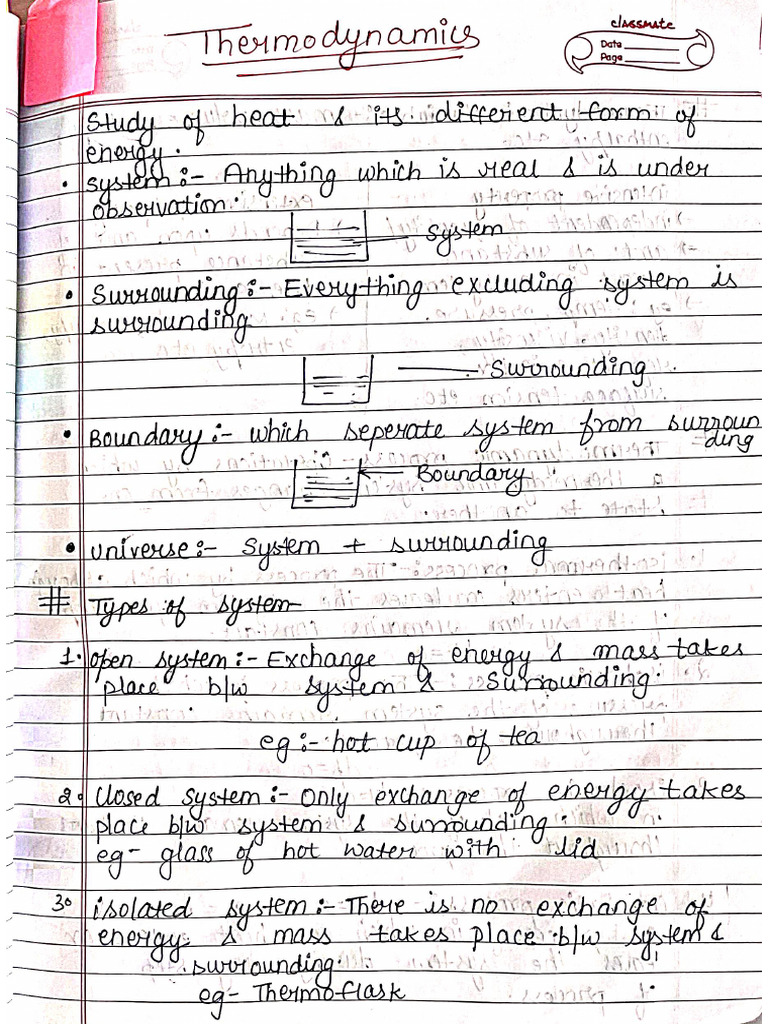 classmate
Date
Page
Thermodynamics
Study of heat & its different form of
energy.
• system:- Anything which is real & is under
observation.
System
• Surrounding:- Everything excluding system is
surrounding
Surrounding
• Boundary:- which seperate system from surroun
-ding
Boundary
• universe:- System + surrounding
# Types of system-
1. open system:- Exchange of energy & mass takes
place b/w system & Surrounding.
eg:- hot cup of tea
2. Closed system:- Only exchange of energy takes
place b/w system & surrounding.
eg- glass of hot water with lid
3. isolated system:- There is no exchange of
energy & mass takes place b/w system &
surrounding.
eg- Thermoflask